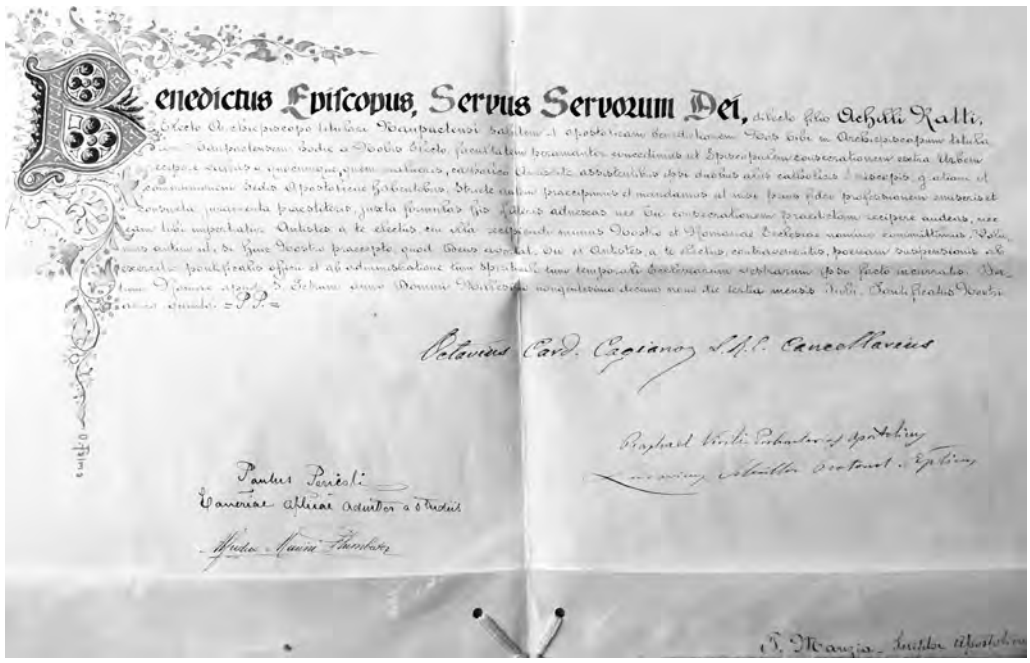 Benedictus Episcopus, Servus Servorum Dei, dilecto filio Achilli Ratti,
Electo Archiepiscopo titulari Naupactensi salutem et apostolicam benedictionem. Nos tibi in Archiepiscopum titula
rem Naupactensem hodie a Nobis electo, facultatem peramanter concedimus ut Episcopalem consecrationem extra Urbem
recipere a quocumque, quem malueris, catholico Antistite assistentibus ipsi duobus aliis catholicis Episcopis, gratiam et
communionem Sedis Apostolicae habentibus. Stricte autem praecipimus et mandamus ut nisi prius fidei professionem emiseris et
consueta juramenta praestiteris, juxta formulas his Litteris adnexas nec tu consecrationem praedictam recipere audeas, nec
eam tibi impertiatur Antistes a te electus, cui illa recipienda munus Nostro et Romanae Ecclesiae nomine committimus. Volu
mus autem ut, si huic Nostro praecepto, quod Deus avertat, tu et Antistes, a te electus, contraveneritis, poenam suspensionis ab
exercitio pontificalis officii et ab administratione tum spirituali tum temporali Ecclesiarum vestrarum ipso facto incurratis. Da
tum Romae apud S. Petrum anno Domini Millesimo nongentesimo decimo nono die tertia mensis Julii, Pontificatus Nostri
anno quinto. = P.P. =
Octavius Card. Cagiano S.R.E. Cancellarius
Raphaël Virili Protonotarius Apostolicus
Protonot. Aplicus
Paulus Pericoli
Cancriae Aplicae adiutor a studiis
Alfridus Marini Plumbator
J. Manzia Scriptor Apostolicus